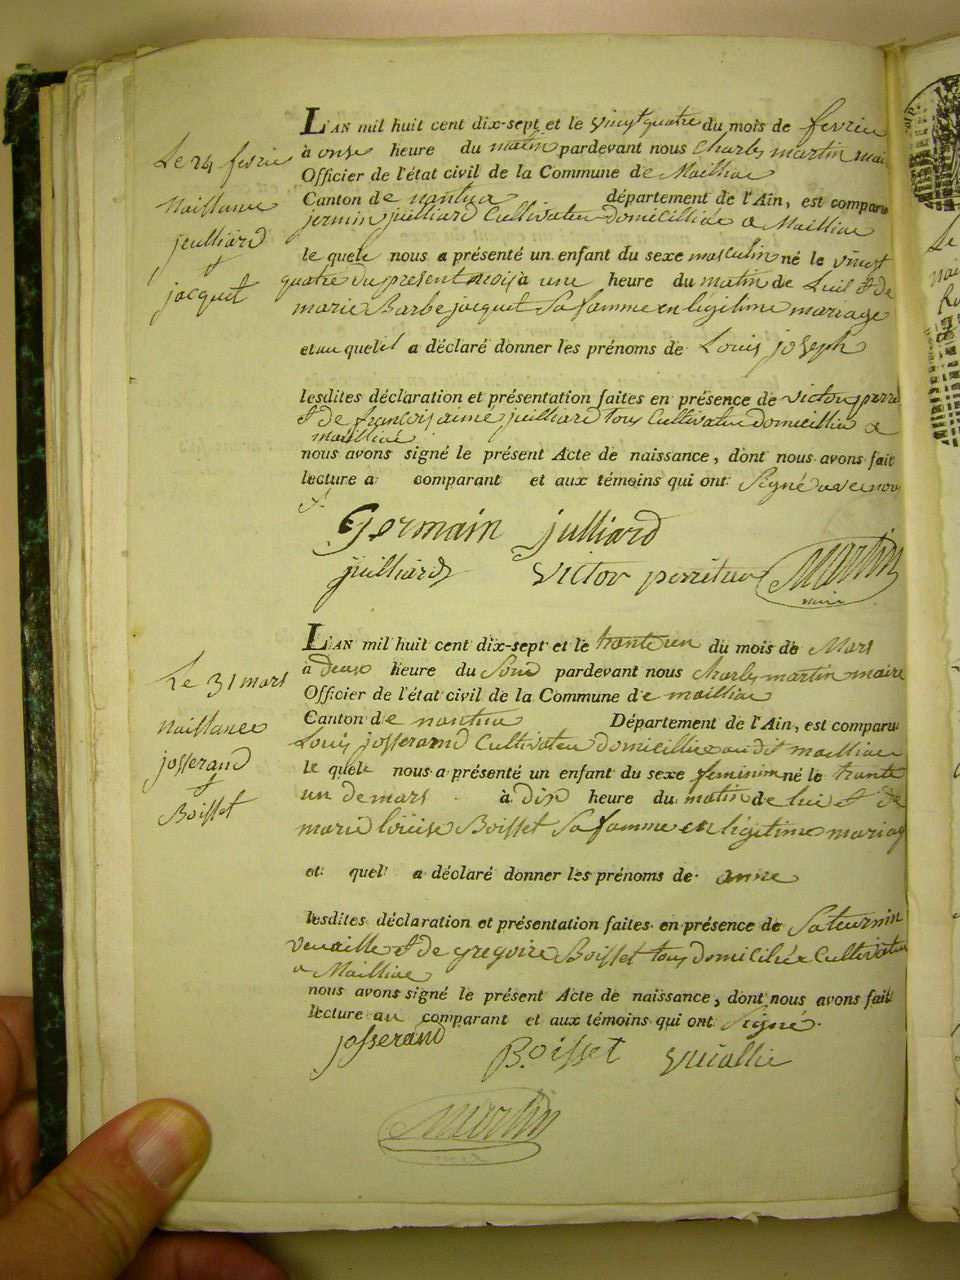 L'AN mil huit cent dix-sept et le vingt quatre du mois de fevrier
Le 24 fevrier
à onse heure du matin pardevant nous Charles martin mai
Officier de l'état civil de la Commune de Mailliac
Naissance
Canton de nantua département de l'Ain, est comparu
jermin juilliard Cultivateur domicillié a Mailliac
jeulliard
et
jacquet
le quel nous a présenté un enfant du sexe masculin né le vingt
quatre du présent mois à une heure du matin de Luil et de
marie Barbe jacquet Sa famme en légitime mariage
et au quel il a déclaré donner les prénoms de Louis joseph
lesdites déclaration et présentation faites en présence de victor
et de françois aimé juilliard tous Cultivateur domicillié a
mailliac
nous avons signé le présent Acte de naissance, dont nous avons fait
lecture a comparant et aux témoins qui ont Signé avec nous
Germain julliard
juilliard victor Martin
maire
L'AN mil huit cent dix-sept et le trante un du mois de Mars
Le 31 mars
à deux heure du Soir pardevant nous Charles martin maire
Officier de l'état civil de la Commune de mailliac
Naissance
Canton de nantua Département de l'Ain, est comparu
Louis josserand Cultivateur domicillié au dit mailliac
josserand
et
Boisset
le quel nous a présenté un enfant du sexe feminim né le trante
un de mars à dix heure du matin de lui et de
marie louise Boisset Sa famme en légitime mariag
et quel a déclaré donner les prénoms de anne
lesdites déclaration et présentation faites en présence de Saturnin
et de gregoire Boisset tous domicilié Cultivateur
a Mailliac
nous avons signé le présent Acte de naissance, dont nous avons fait
lecture au comparant et aux témoins qui ont Signé.
josserand
Boisset
Martin